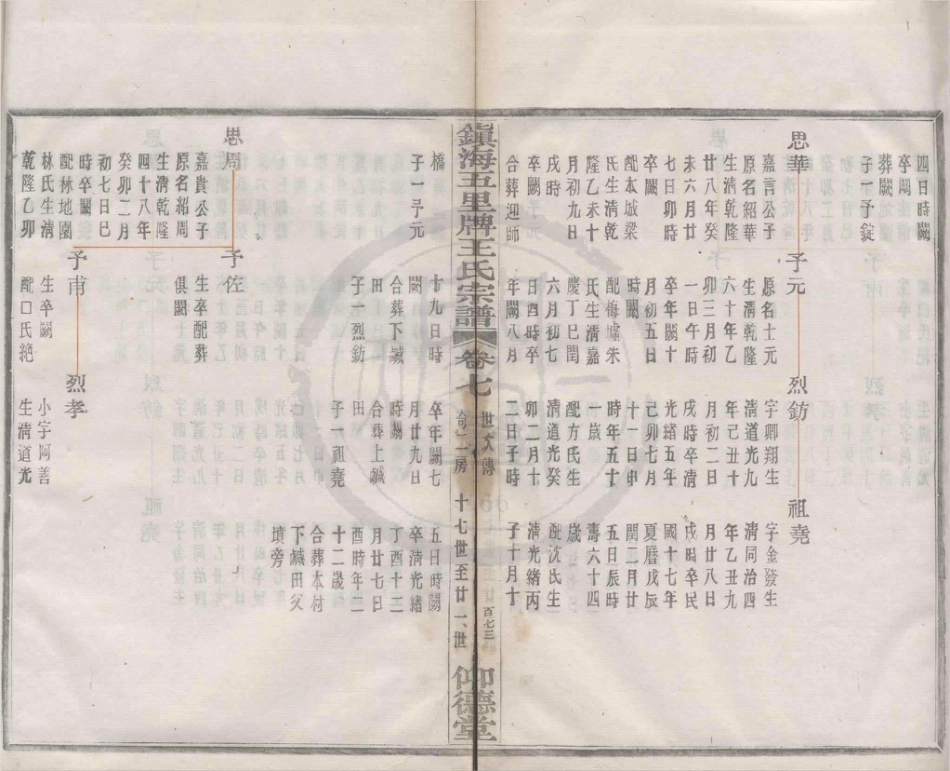 四日時闕
卒闕
葬闕
子一予錠
思華
嘉言公子
原名紹華
生清乾隆
廿八年癸
未六月廿
七日卯時
卒闕
配本城梁
氏生清乾
隆乙未十
月初九日
戌時
卒闕
合葬迎師
橋
子一予元
予元
原名士元
生清乾隆
六十年乙
卯三月初
一日午時
卒年闕十
月初五日
時闕
配梅墟朱
氏生清嘉
慶丁巳閏
六月初七
日酉時卒
年闕八月
十九日時
闕
合葬下鹹
田
子一烈鈁
烈鈁
字卿翔生
清道光九
年己丑十
月初二日
戌時卒清
光緒五年
己卯七月
十一日申
時年五十
一歲
配方氏生
清道光癸
卯二月十
二日子時
卒年闕七
月廿九日
時闕
合葬上鹹
田
子一祖堯
祖堯
字金發生
清同治四
年乙丑九
月廿八日
戌時卒民
國十七年
夏曆戊辰
閏二月廿
五日辰時
壽六十四
歲
配沈氏生
清光緒丙
子十月十
五日時闕
卒清光緒
丁酉十二
月廿七日
酉時年二
十二歲
合葬太村
下鹹田父
墳旁
鎮海五里牌王氏宗譜
卷七
世次傳
十七世至廿一世
百七三
仰德堂
思周
嘉貴公子
原名紹周
生清乾隆
四十八年
癸卯二月
初七日巳
時卒闕
配林地園
林氏生清
乾隆乙卯
予佐
生卒配葬
俱闕
予甫
生卒闕
配口氏絶
烈孝
小字阿善
生清道光